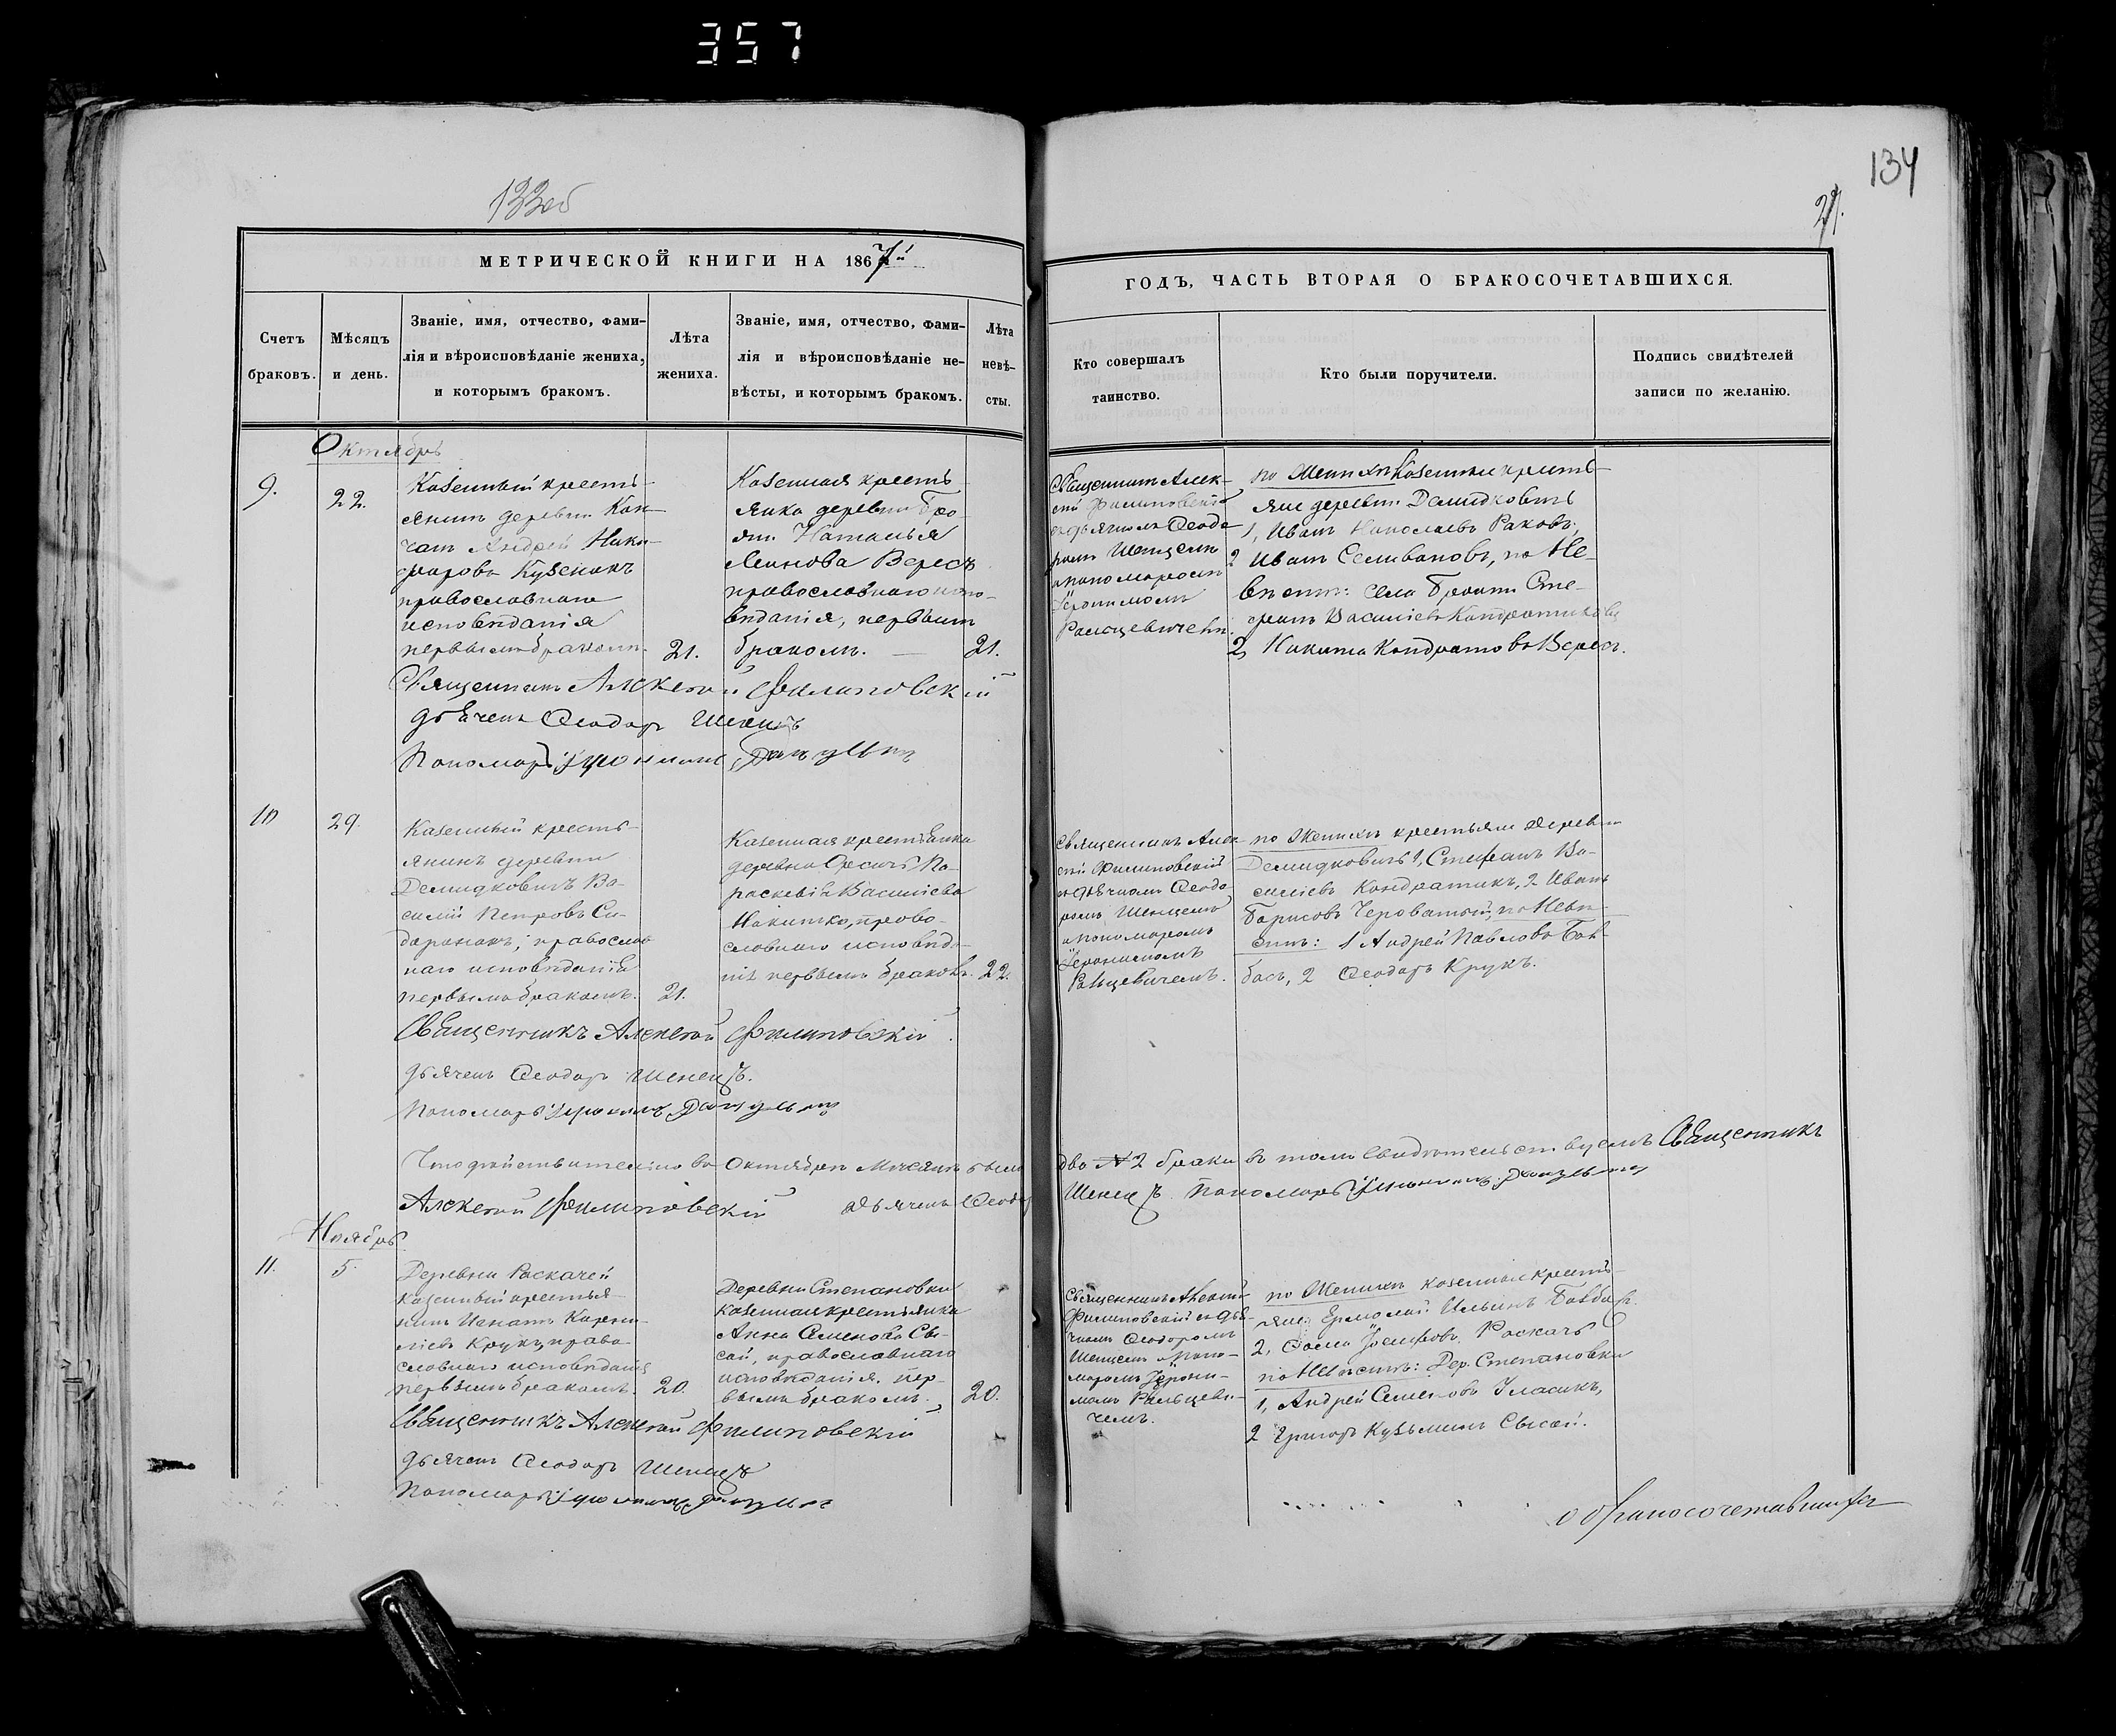 357
133об
134
21.
МЕТРИЧЕСКОЙ КНИГИ НА 1867й
ГОДЪ, ЧАСТЬ ВТОРАЯ О БРАКОСОЧЕТАВШИХСЯ.
Счетъ
браковъ.
Мѣсяцъ
и день.
Званіе, имя, отчество, фами-
лія и вѣроисповѣданіе жениха,
и которымъ бракомъ.
Лѣта
жениха.
Званіе, имя, отчество, фами-
лія и вѣроисповѣданіе не-
вѣсты, и которымъ бракомъ.
Лѣта
невѣ-
сты.
Кто совершалъ
таинство.
Кто были поручители.
Подпись свидѣтелей
записи по желанію.
Октябрь
9.
22.
Казенный кресть-
янинъ деревни
Андрей Ники-
форовъ Кузенокъ
православнаго
исповѣданія
первымъ бракомъ.
21.
Казенная кресть-
янка деревни Бро-
яти Наталья
Леинова Вересъ
православнаго испо-
вѣданія, первымъ
бракомъ.
21.
Священникъ Алек-
сій Филиповскій
съ дьячкомъ Ѳеодо
ромъ Шенцемъ
и пономаремъ
Іеронимомъ
Ральцевичемъ.
по Женихѣ Казенные кресть-
яне деревни Демидковичъ
1, Иванъ Николаевъ Раковъ,
2 Иванъ Селивановъ, по Не-
вѣстѣ: села Брояти Сте-
фанъ Василіевъ Кондратиковъ
2, Никита Кондратовъ Вересъ.
Священникъ Алексій Филиповскій
дьячекъ Ѳеодоръ Шенецъ
Пономарь Іеронимъ
10
29.
Казенный кресть-
янинъ деревни
Демидковичъ Ва-
силій Петровъ Си-
доронокъ, православ
наго исповѣданія
первымъ бракомъ.
21.
Казенная крестьянка
деревни Орсичъ Па-
раскевія Василіева
Никитко, право-
славнаго исповѣда-
нія первымъ бракомъ.
22.
Священникъ Алек
сій Филиповскій
съ дьячкомъ Ѳеодо
ромъ Шенцемъ
и пономаремъ
Іеронимомъ
Ральцевичемъ.
по Женихѣ крестьяне деревни
Демидковичъ 1, Стефанъ Ва-
силіевъ Кондратикъ, 2 Иванъ
Борисовъ Череватый, по Невѣ-
стѣ: 1 Андрей Павловъ Бов-
басъ, 2 Ѳеодоръ Крукъ.
Священникъ Алексій Филиповскій
дьячекъ Ѳеодоръ Шенецъ.
Пономарь Іеронимъ
Что дѣйствительно въ Октябрѣ Мѣсяцѣ было два № 2 брака въ томъ свидѣтельствуемъ Священникъ
Алексій Филиповскій дьячекъ Ѳеодоръ Шенецъ Пономарь Іеронимъ
Ноябрь
11.
5.
Деревни Раскачей
казенный крестья-
нинъ Игнатъ Карни-
ліевъ Крукъ, право-
славнаго исповѣданія
первымъ бракомъ.
20.
Деревни Степановки
казенная крестьянка
Анна Семенова Сы-
сой, православнаго
исповѣданія. пер-
вымъ бракомъ.
20.
Священникъ Алексій
Филиповскій съ дья-
чкомъ Ѳеодоромъ
Шенцемъ и поно-
маремъ Іерони-
момъ Ральцеви-
чемъ.
по Женихѣ казенные кресть-
яне: Ермолай Ильинъ Бовбасъ
2, Ѳома Іосифовъ Раскачъ
по Невѣстѣ: дер. Степановки
1, Андрей Семеновъ Гласикъ,
2 Григорь Кузьминъ Сысой.
Священникъ Алексій Филиповскій
дьячекъ Ѳеодоръ Шенецъ
Пономарь Іеронимъ
о бракосочетавшихся